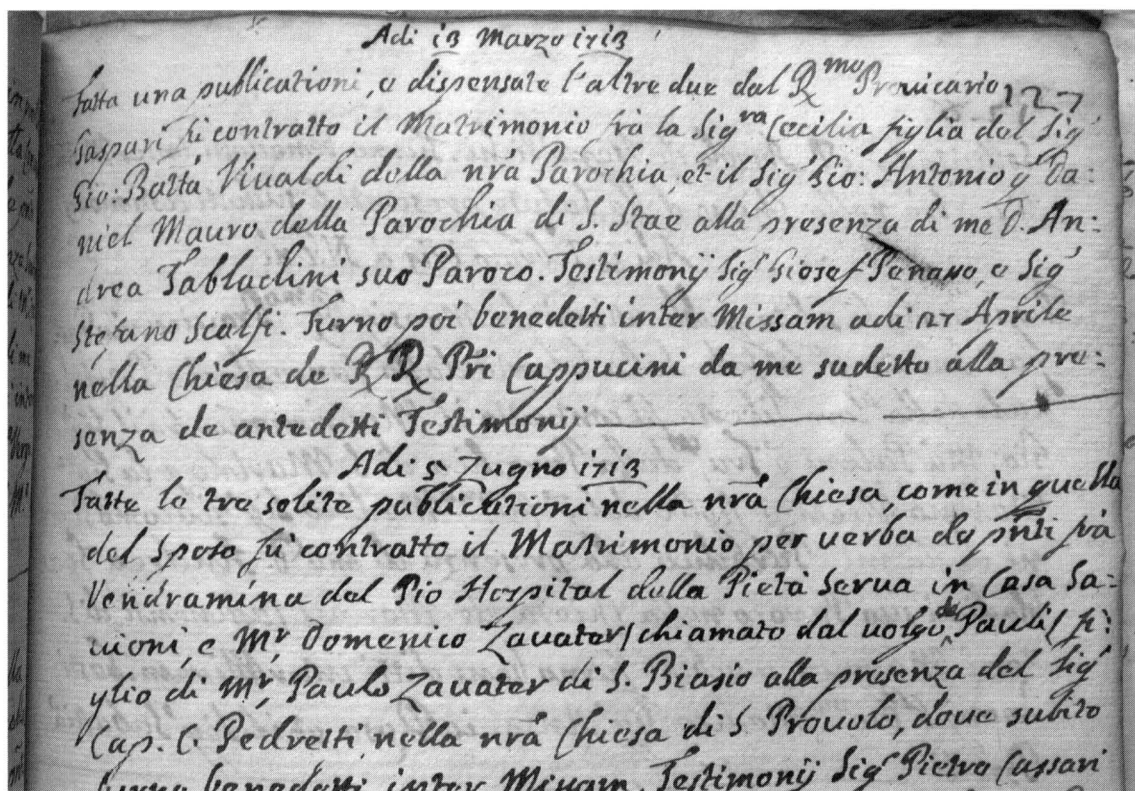 Adi 13 Marzo 1713
Fatta una publicationi, e dispensate l'altre due dal Rmo Provicario 127
Gaspari fù contratto il Matrimonio frà la Sigra Cecilia figlia del Sigr
Gio: Batta Vivaldi della nrã Parochia, et il Sigr Gio: Antonio q Da:
niel Mauro della Parochia di S. Stae alla presenza di me D. An:
drea Tabladini suo Paroco. Testimonij Sigr Giosef e Sigr
Stefano Scalfi. Furno poi benedetti inter Missam adi 27 Aprile
nella Chiesa de RR Pri Cappucini da me sudetto alla pre:
senza de antedetti Testimonij
Adi 5 Zugno 1713
Fatte le tre solite publicationi nella nrã Chiesa, come in quella
del Sposo fù contratto il Matrimonio per verba de pnti frà
Vendramina del Pio Hospital della Pietà Serva in Casa Sa:
vioni, e Mr. Domenico Zavater/ chiamato dal volgo de Pauli/ fi:
glio di Mr. Paulo Zavater di S. Biasio alla presenza del Sigr
Cap. C. Pedretti nella nrã Chiesa di S Provolo, dove subito
furno benedetti inter Missam. Testimonij Sigr Pietro Cassari